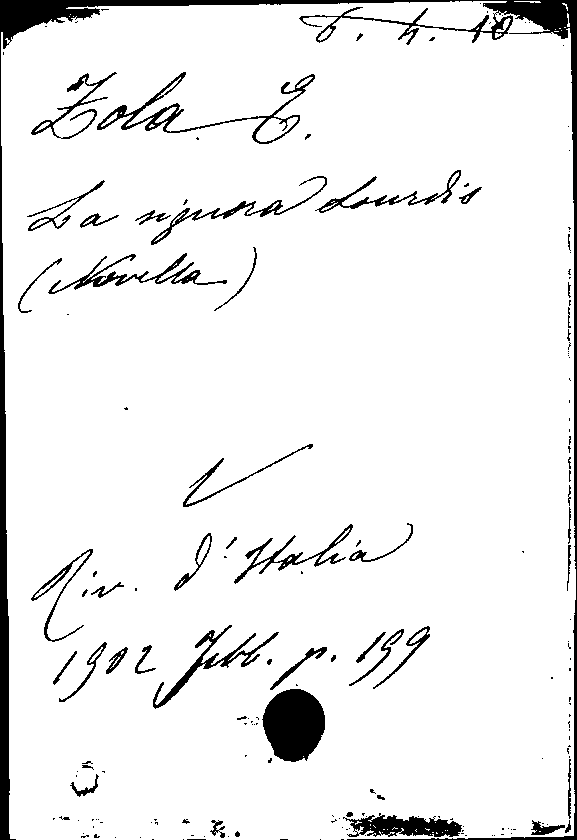 6. 4. 10
Zola E.
La signora Lourdis
(Novella)
Riv. d'Italia
1902 Febb. p. 199